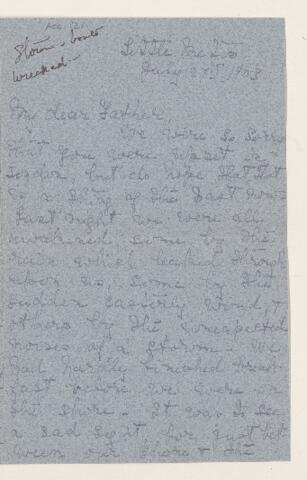 Storm - boats
wrecked -
Little Metis
July 27th 1903
My dear Father,
We were so sorry
that you were upset in
London, but do hope that that
is a thing of the past now.
Last night we were all
awakened, some by the
rain which leaked through
upon us, some by the
sudden easterly wind, &
others by the unexpected
noises of a storm - We
had hardly finished break-
fast before we were on
the shore - It was to see
a sad sight, for just bet-
ween our shore & the